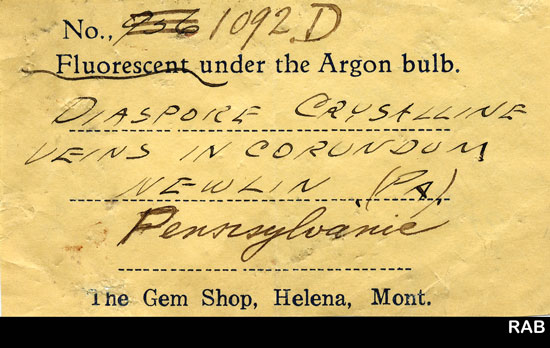 No., 956 1092 D
Fluorescent under the Argon bulb.
DIASPORE CRYSALLINE
VEINS IN CORUNDUM
NEWLIN (PA).
Pennsylvanie
The Gem Shop, Helena, Mont.
RAB